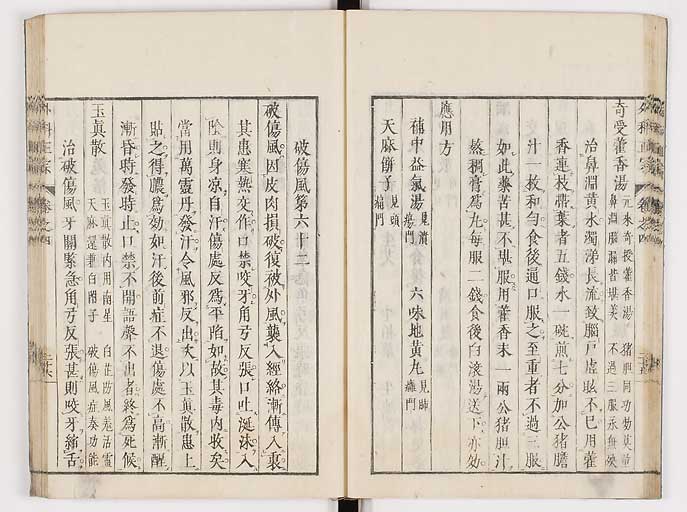 奇受藿香湯
元來奇授藿香湯 猪胆同功効莫量
鼻淵腦漏皆堪美 不過三服永無殃
治鼻淵黄水濁涕長流致腦戸虚眩不已用藿
香連枝帶葉者五錢水一碗煎七分加公猪膽
汁一枚和勻食後通口服之至重者不過三服
如此藥苦甚不堪服用藿香末一兩公猪胆汁
熬稠膏為丸每服二錢食後白滾湯送下亦効
應用方
補中益氣湯見潰瘍門 六味地黄丸見
天麻餅子見頭
破傷風第六十二
破傷風因皮肉損破復被外風襲入經絡漸傳入裏
其患寒熱交作口禁咬牙角弓反張口吐涎沫入
陰則身凉自汗傷處反為平陷如故其毒内收矣
當用萬靈丹發汗令風邪反出次以玉眞散患上
貼之得膿為効如汗後前症不退傷處不高漸醒
漸昏時發時止口禁不開語聲不出者終為死候
玉眞散
玉眞散内用南星 白芷防風羗活靈
天麻還兼白附子 破傷風症奏功能
治破傷風牙關緊急角弓反張甚則咬牙縮舌
外科正宗 卷之四